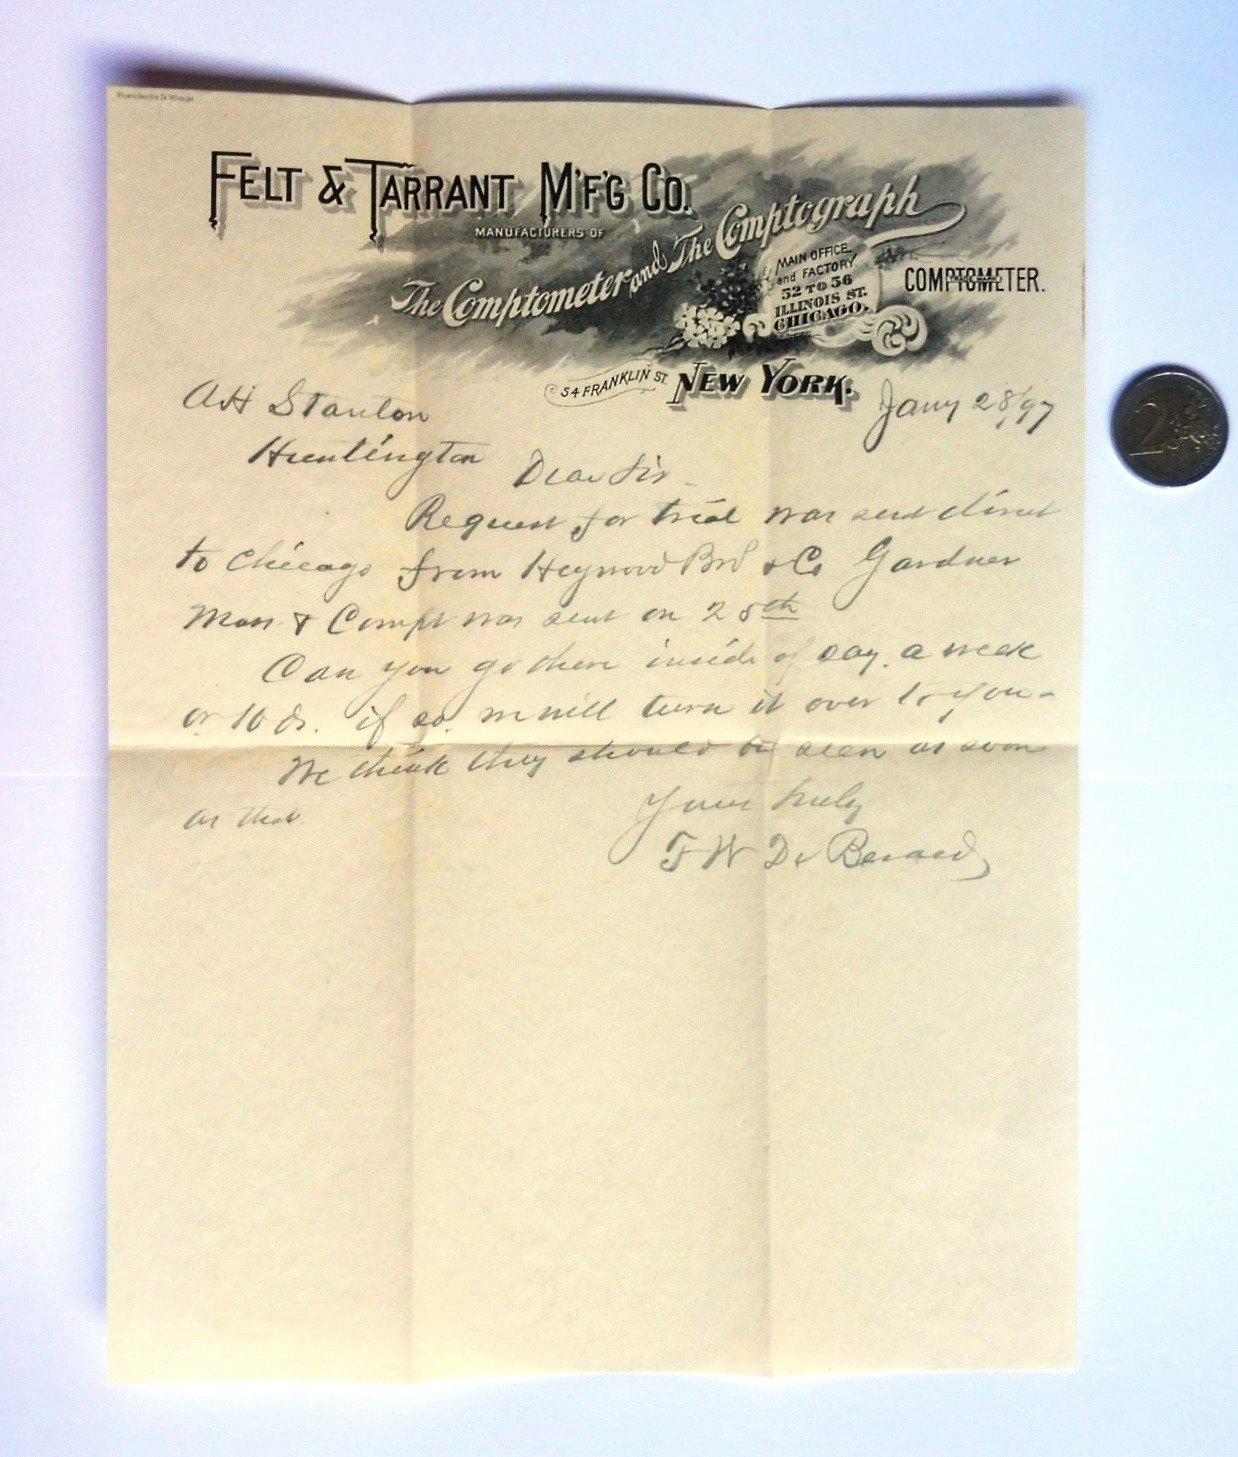 FELT & TARRANT M'F'G CO.
MANUFACTURERS OF
The Comptometer and The Comptograph
MAIN OFFICE
and FACTORY
52 TO 56
ILLINOIS ST.
CHICAGO.
COMPTOMETER.
54 FRANKLIN ST. NEW YORK.
Jany 28/97
A H Stanton
Huntington
Dear Sir -
Request for trial was sent direct
to Chicago from Heywood Bro & Co Gardner
Mass & Compt was sent on 25th
Can you go there inside of say a week
or 10 ds. if so we will turn it over to you -
We think they should be seen as soon
as that
Yours truly
F W De Berard
2